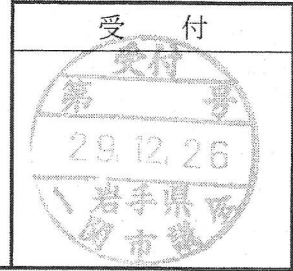 受 付
受付
第 号
29.12.26
岩手県
一関市議